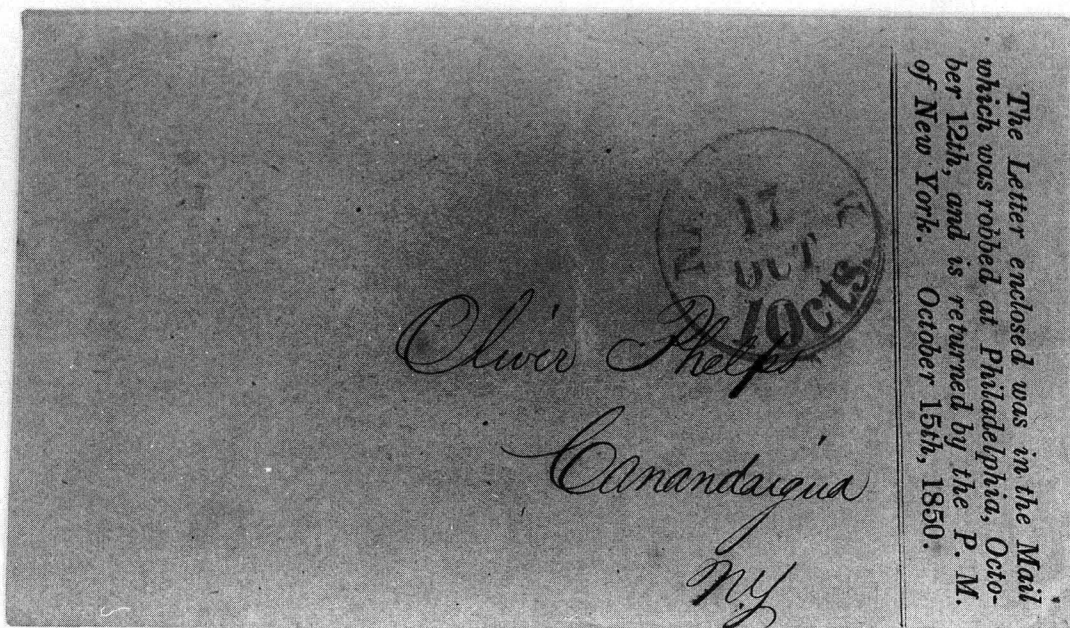 The Letter enclosed was in the Mail
which was robbed at Philadelphia, Octo-
ber 12th, and is returned by the P. M.
of New York. October 15th, 1850.
17
OCT
10cts.
Oliver Phelps
Canandaigua
N.Y